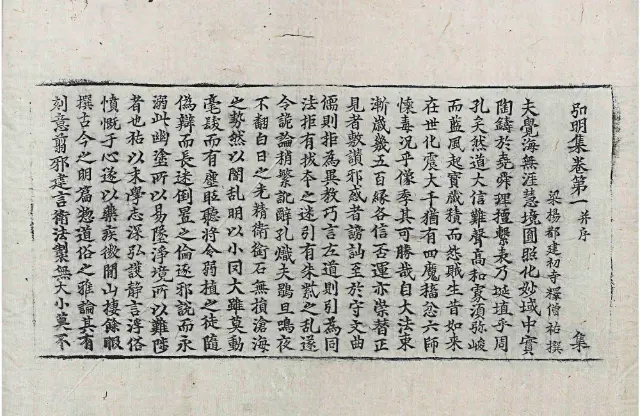 弘明集卷第一并序 集
梁楊都建初寺釋僧祐撰
夫覺海無涯慧境圓照化妙域中實
陶鑄於堯舜理擅繫表乃埏埴乎周
孔矣然道大信難聲高和寡須弥峻
而藍風起寶藏積而怨賊生昔如來
在世化震大千猶有四魔稸忿六師
懷毒況乎像季其可勝哉自大法東
漸歲幾五百緣各信否運亦崇替正
見者敷讚邪惑者謗訕至於守文曲
儒則拒為異教巧言左道則引為同
法拒有拔本之迷引有朱紫之亂遂
令詭論稍繁訛辭孔熾夫鶡旦鳴夜
不翻白日之光精衛銜石無損滄海
之勢然以闇亂明以小罔大雖莫動
毫髮而有塵眂聽將令弱植之徒隨
偽辯而長迷倒置之倫逐邪說而永
溺此幽塗所以易墜淨境所以難陟
者也祐以末學志深弘護靜言浮俗
憤慨于心遂以藥疾微間山棲餘暇
撰古今之明篇惣道俗之雅論其有
刻意剪邪建言衛法製無大小莫不